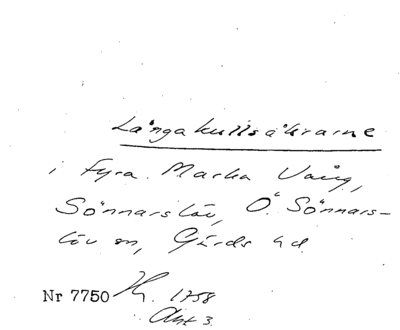 Långakullsåkrarne
i Fyra Marka Vång,
Sönnarslöv, Ö. Sönnars-
löv sn, Gärds hd.
Nr 7750 1758
Akt 3.